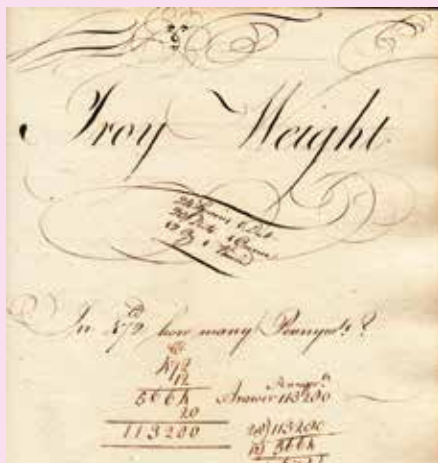 Troy Weight
24 Grains 1 Dwt
20 Dwts 1 Ounce
12 Oz 1 Pound
In 472 how many Pennywts?
472
12
5664 Answer 113280
20
113280 20) 113280
12) 5664